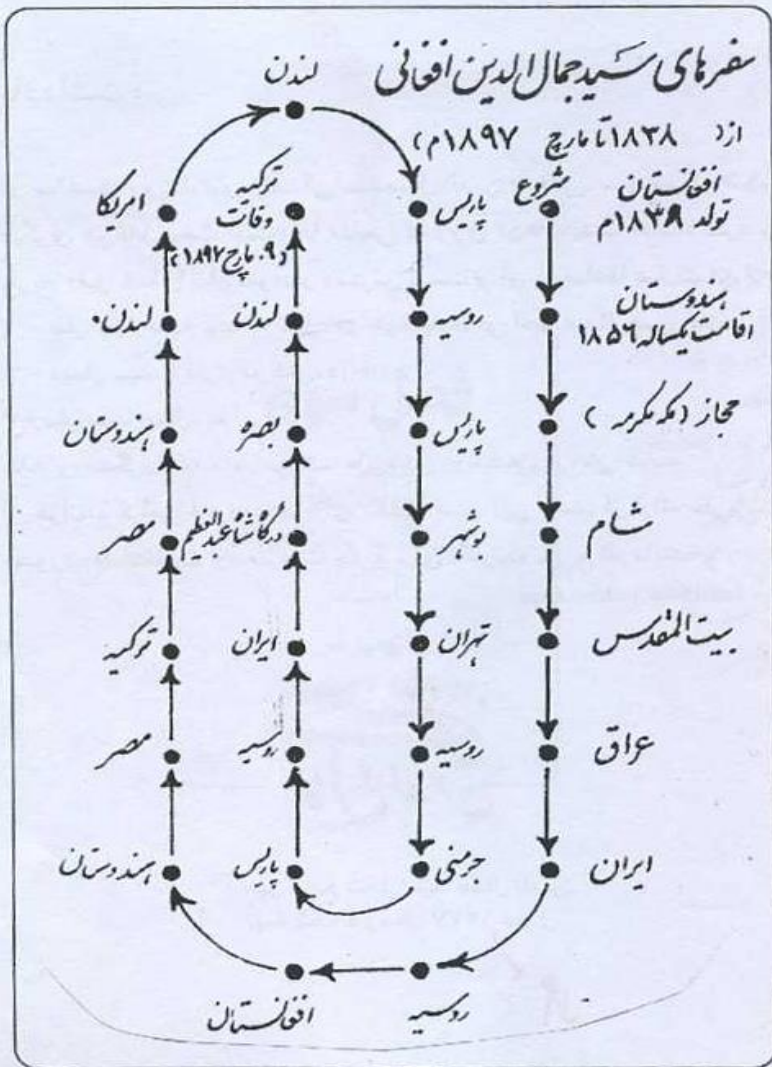 سفرهای سید جمال الدین افغانی
از( ۱۸۳۸ تا مارچ ۱۸۹۷م)
شروع
افغانستان
تولد ۱۸۳۸م
هندوستان
اقامت یکساله ۱۸۵۶
حجاز (مکه مکرمه)
شام
بیت المقدس
عراق
ایران
روسیه
افغانستان
هندوستان
مصر
ترکیه
مصر
هندوستان
لندن
امریکا
لندن
پاریس
روسیه
پاریس
بوشهر
تهران
روسیه
جرمنی
پاریس
روسیه
ایران
درگاه شاه عبدالعظیم
بصره
لندن
ترکیه
وفات
(۹ مارچ ۱۸۹۷)